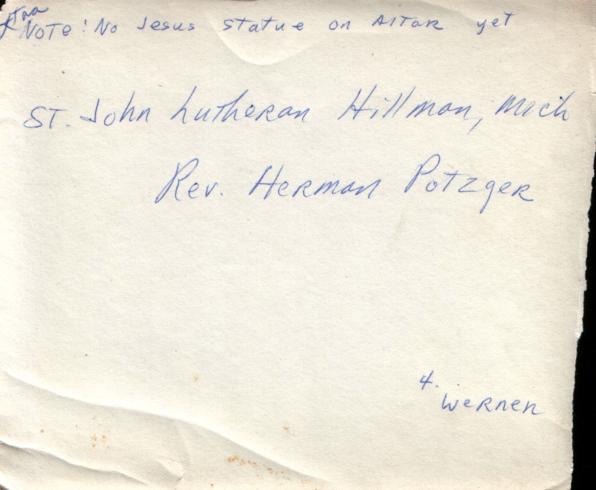 NOTE! No Jesus Statue on Altar yet
ST. John Lutheran Hillman, Mich
Rev. Herman Potzger
4.
Werner